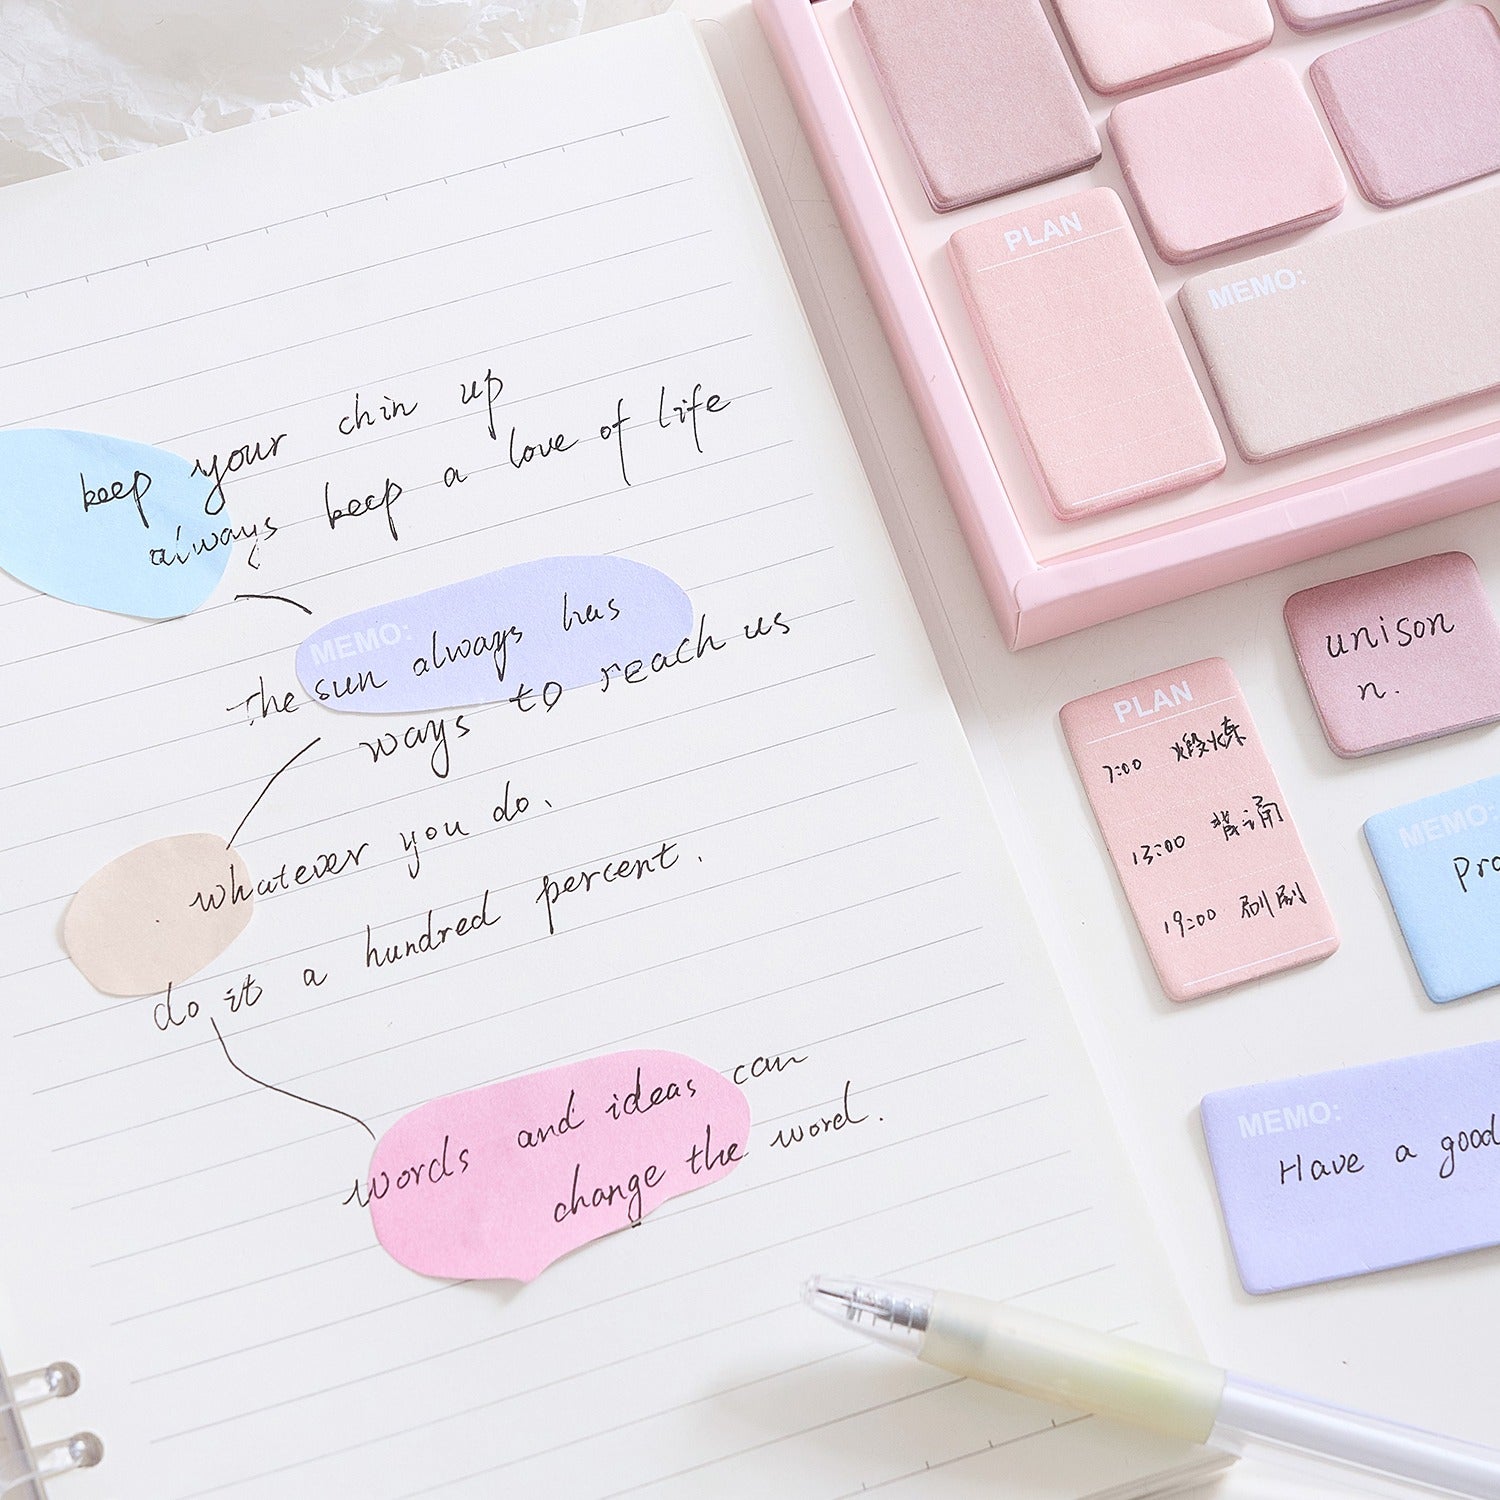 keep your chin up
always keep a love of life
MEMO:
the sun always has
ways to reach us
whatever you do.
do it a hundred percent.
words and ideas can
change the word.
PLAN
MEMO:
unison
n.
PLAN
7:00 煅炼
13:00 背诵
19:00
MEMO:
MEMO:
Have a good